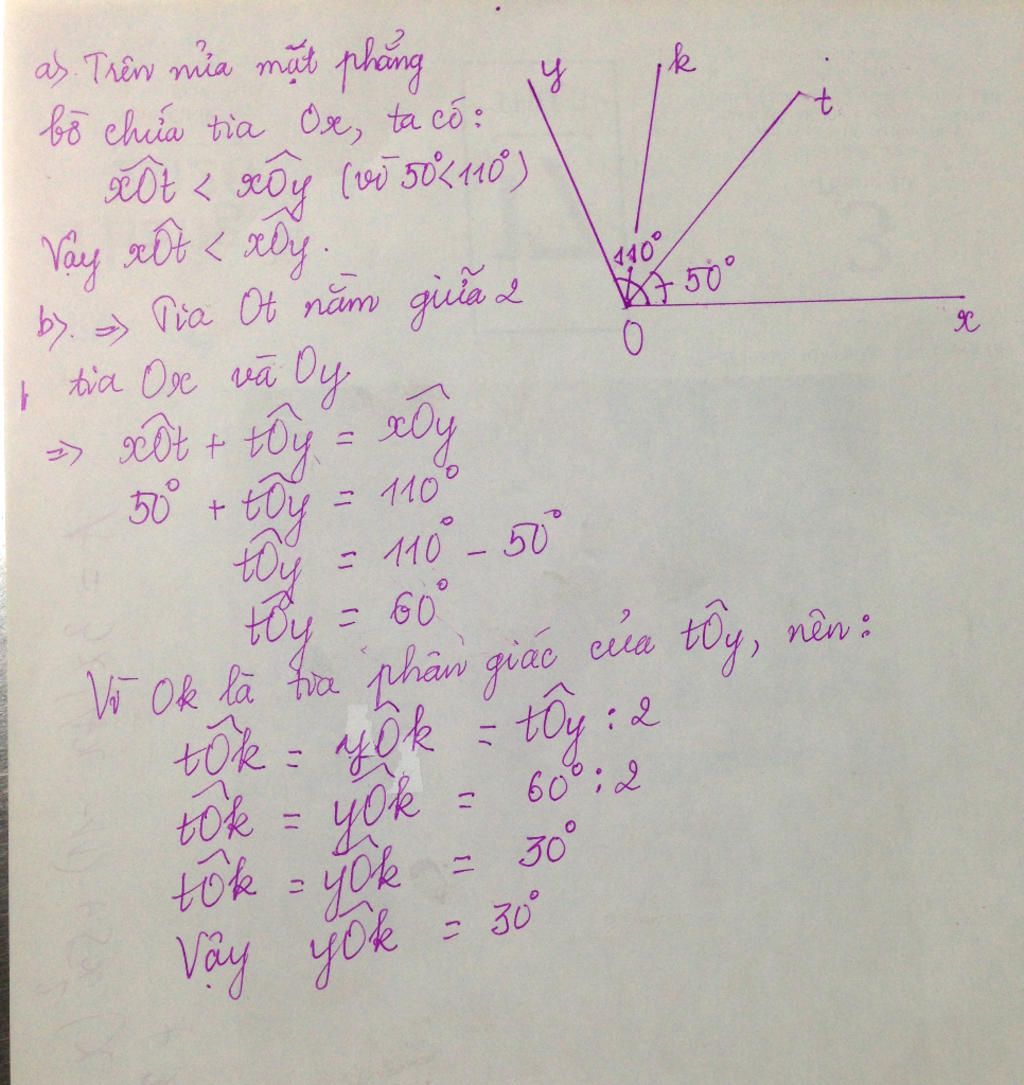 a) Trên nửa mặt phẳng
bờ chứa tia Ox, ta có:
xÔt < xÔy (vì 50° < 110°)
Vậy xÔt < xÔy.
b) ⇒ Tia Ot nằm giữa 2
tia Ox và Oy.
⇒ xÔt + tÔy = xÔy
50° + tÔy = 110°
tÔy = 110° - 50°
tÔy = 60°
Vì Ok là tia phân giác của tÔy, nên:
tÔk = yÔk = tÔy : 2
tÔk = yÔk = 60° : 2
tÔk = yÔk = 30°
Vậy yÔk = 30°
y
k
t
110°
50°
O
x